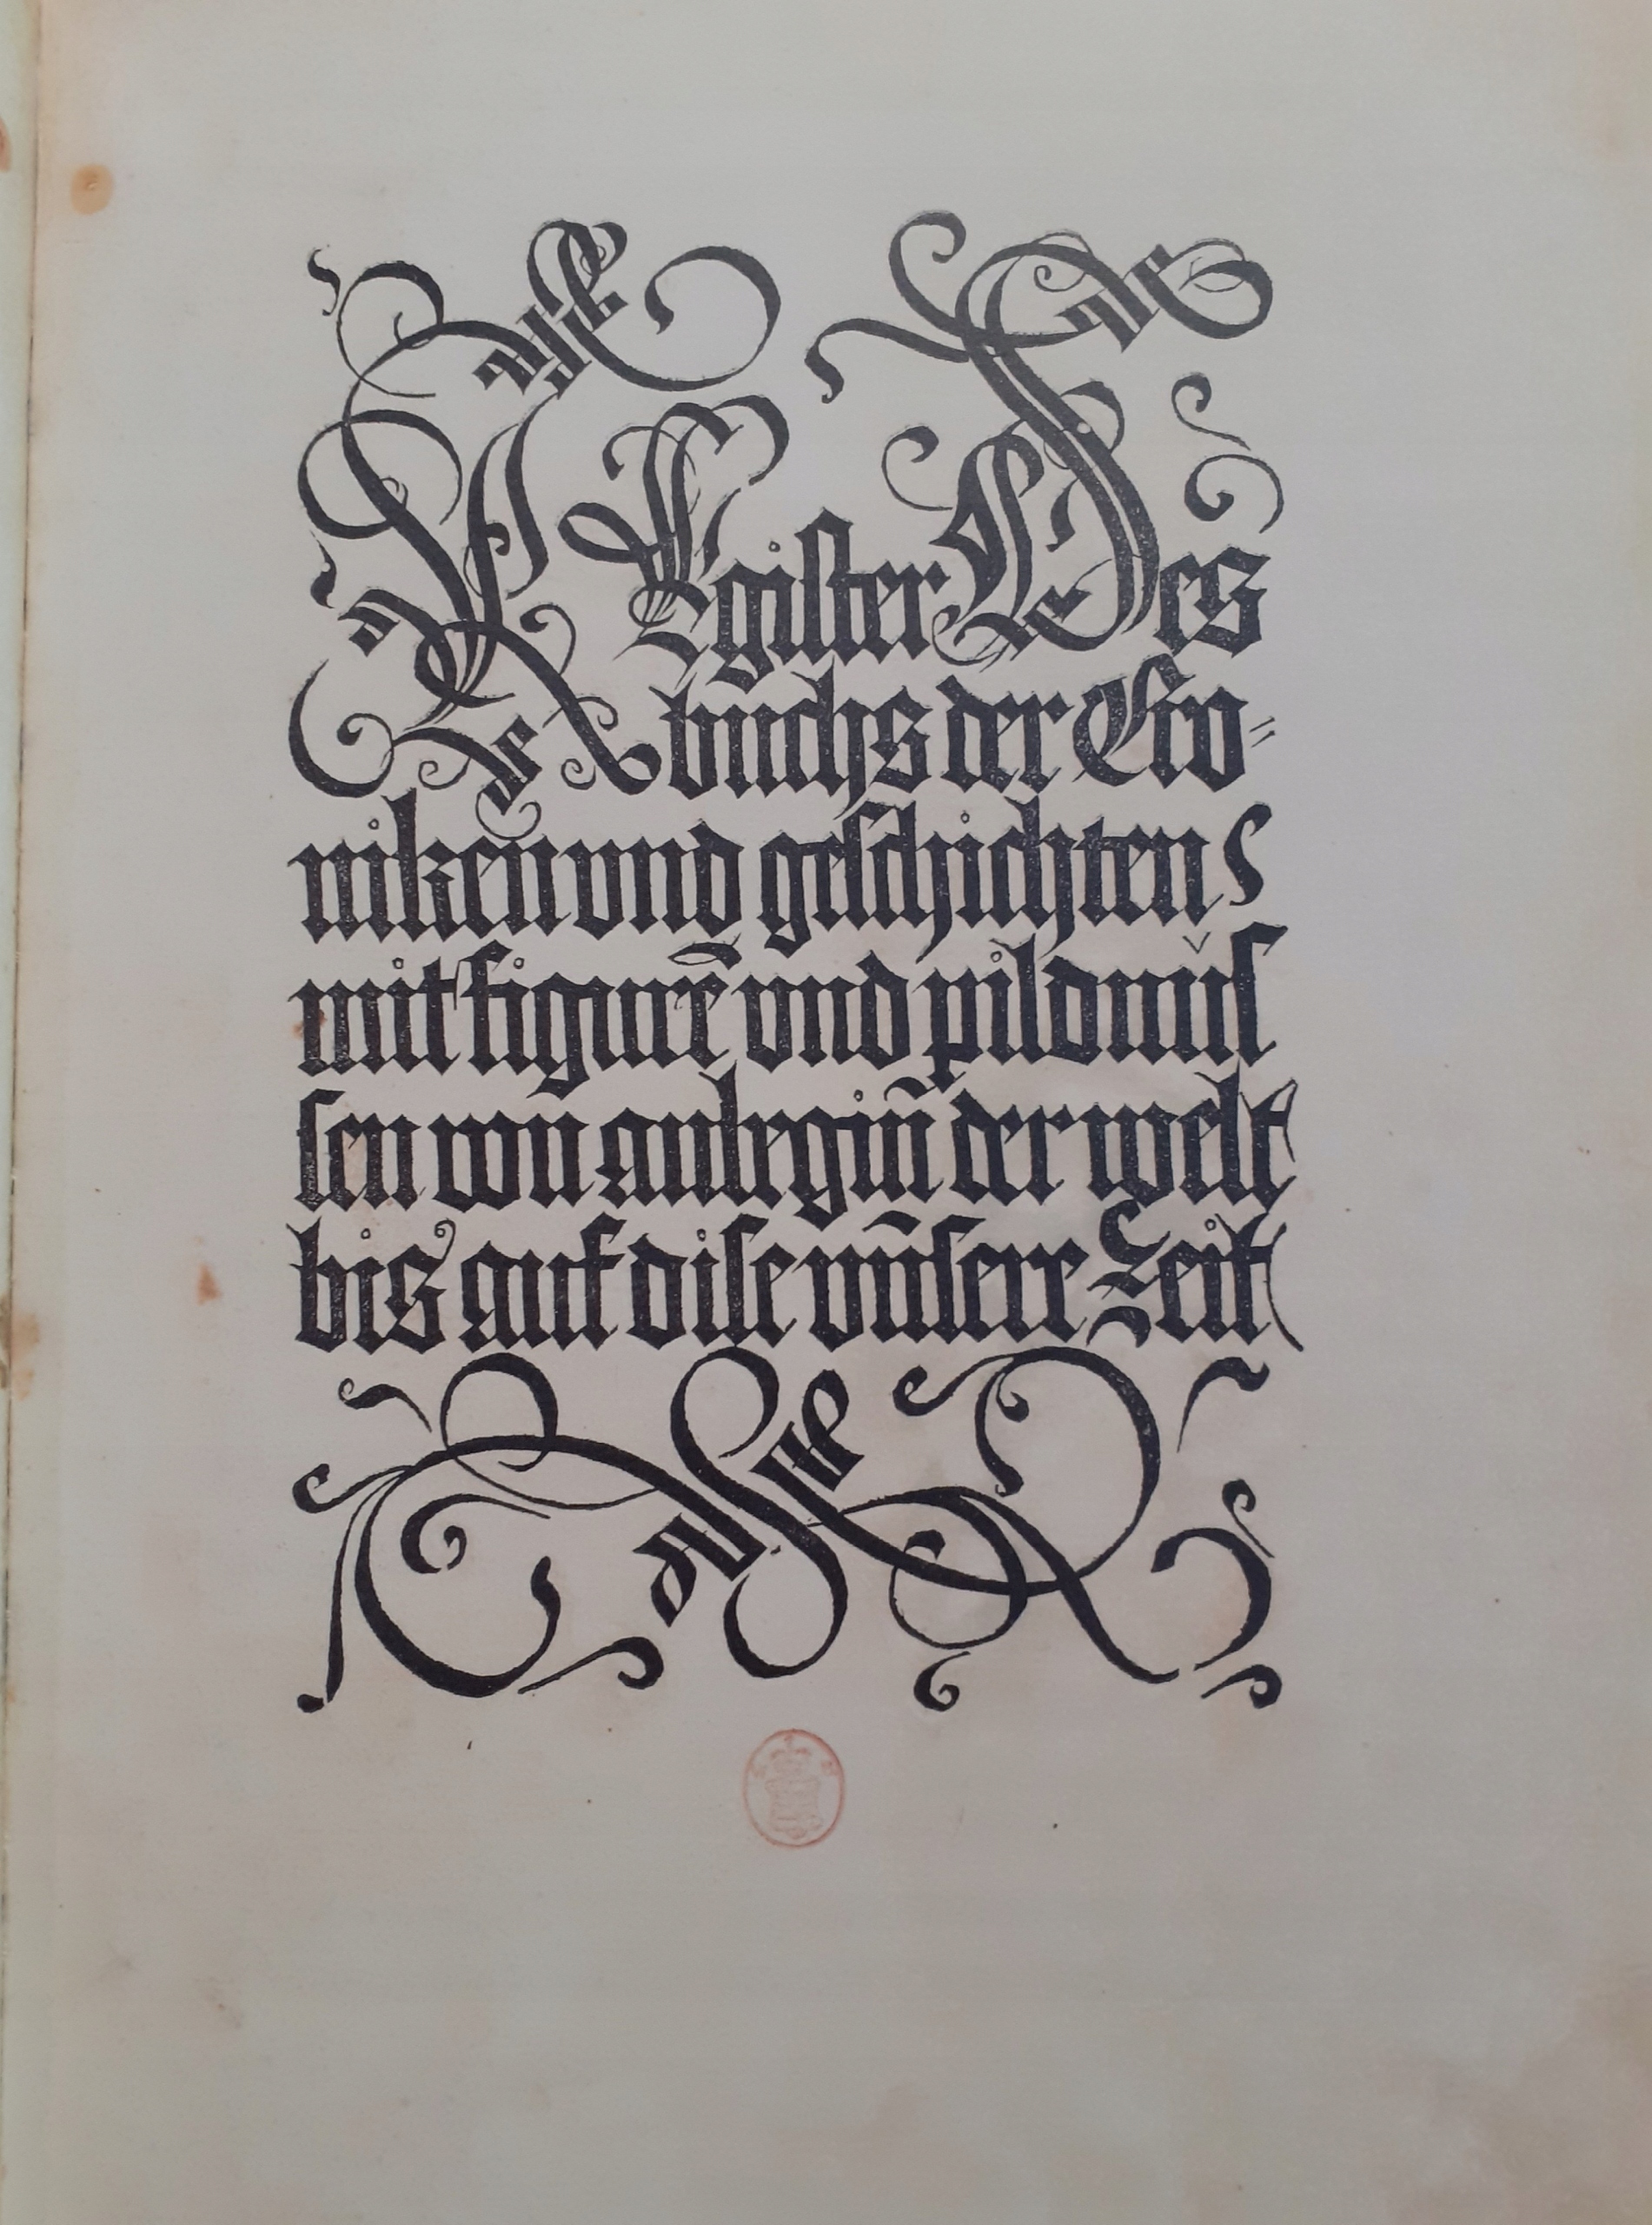 REgister Des
buchs der Cro-
niken und geschichten
mit figurē und pildnus
sen von anbegiñ der welt
bis auf dise uñsere Zeit